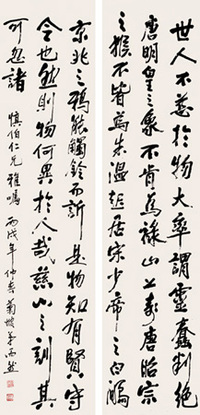 世人不慈於物大率謂靈蠢判絕
唐明皇之象不肯為祿山上壽唐昭宗
之猴不皆為朱温起居宋少帝之白鷴
京兆之鴉能觸鈴而訴是物知有賢守
令也然則物何異於人哉慈山之訓其
可忽諸
慎伯仁兄雅鳴 丙戌年仲春